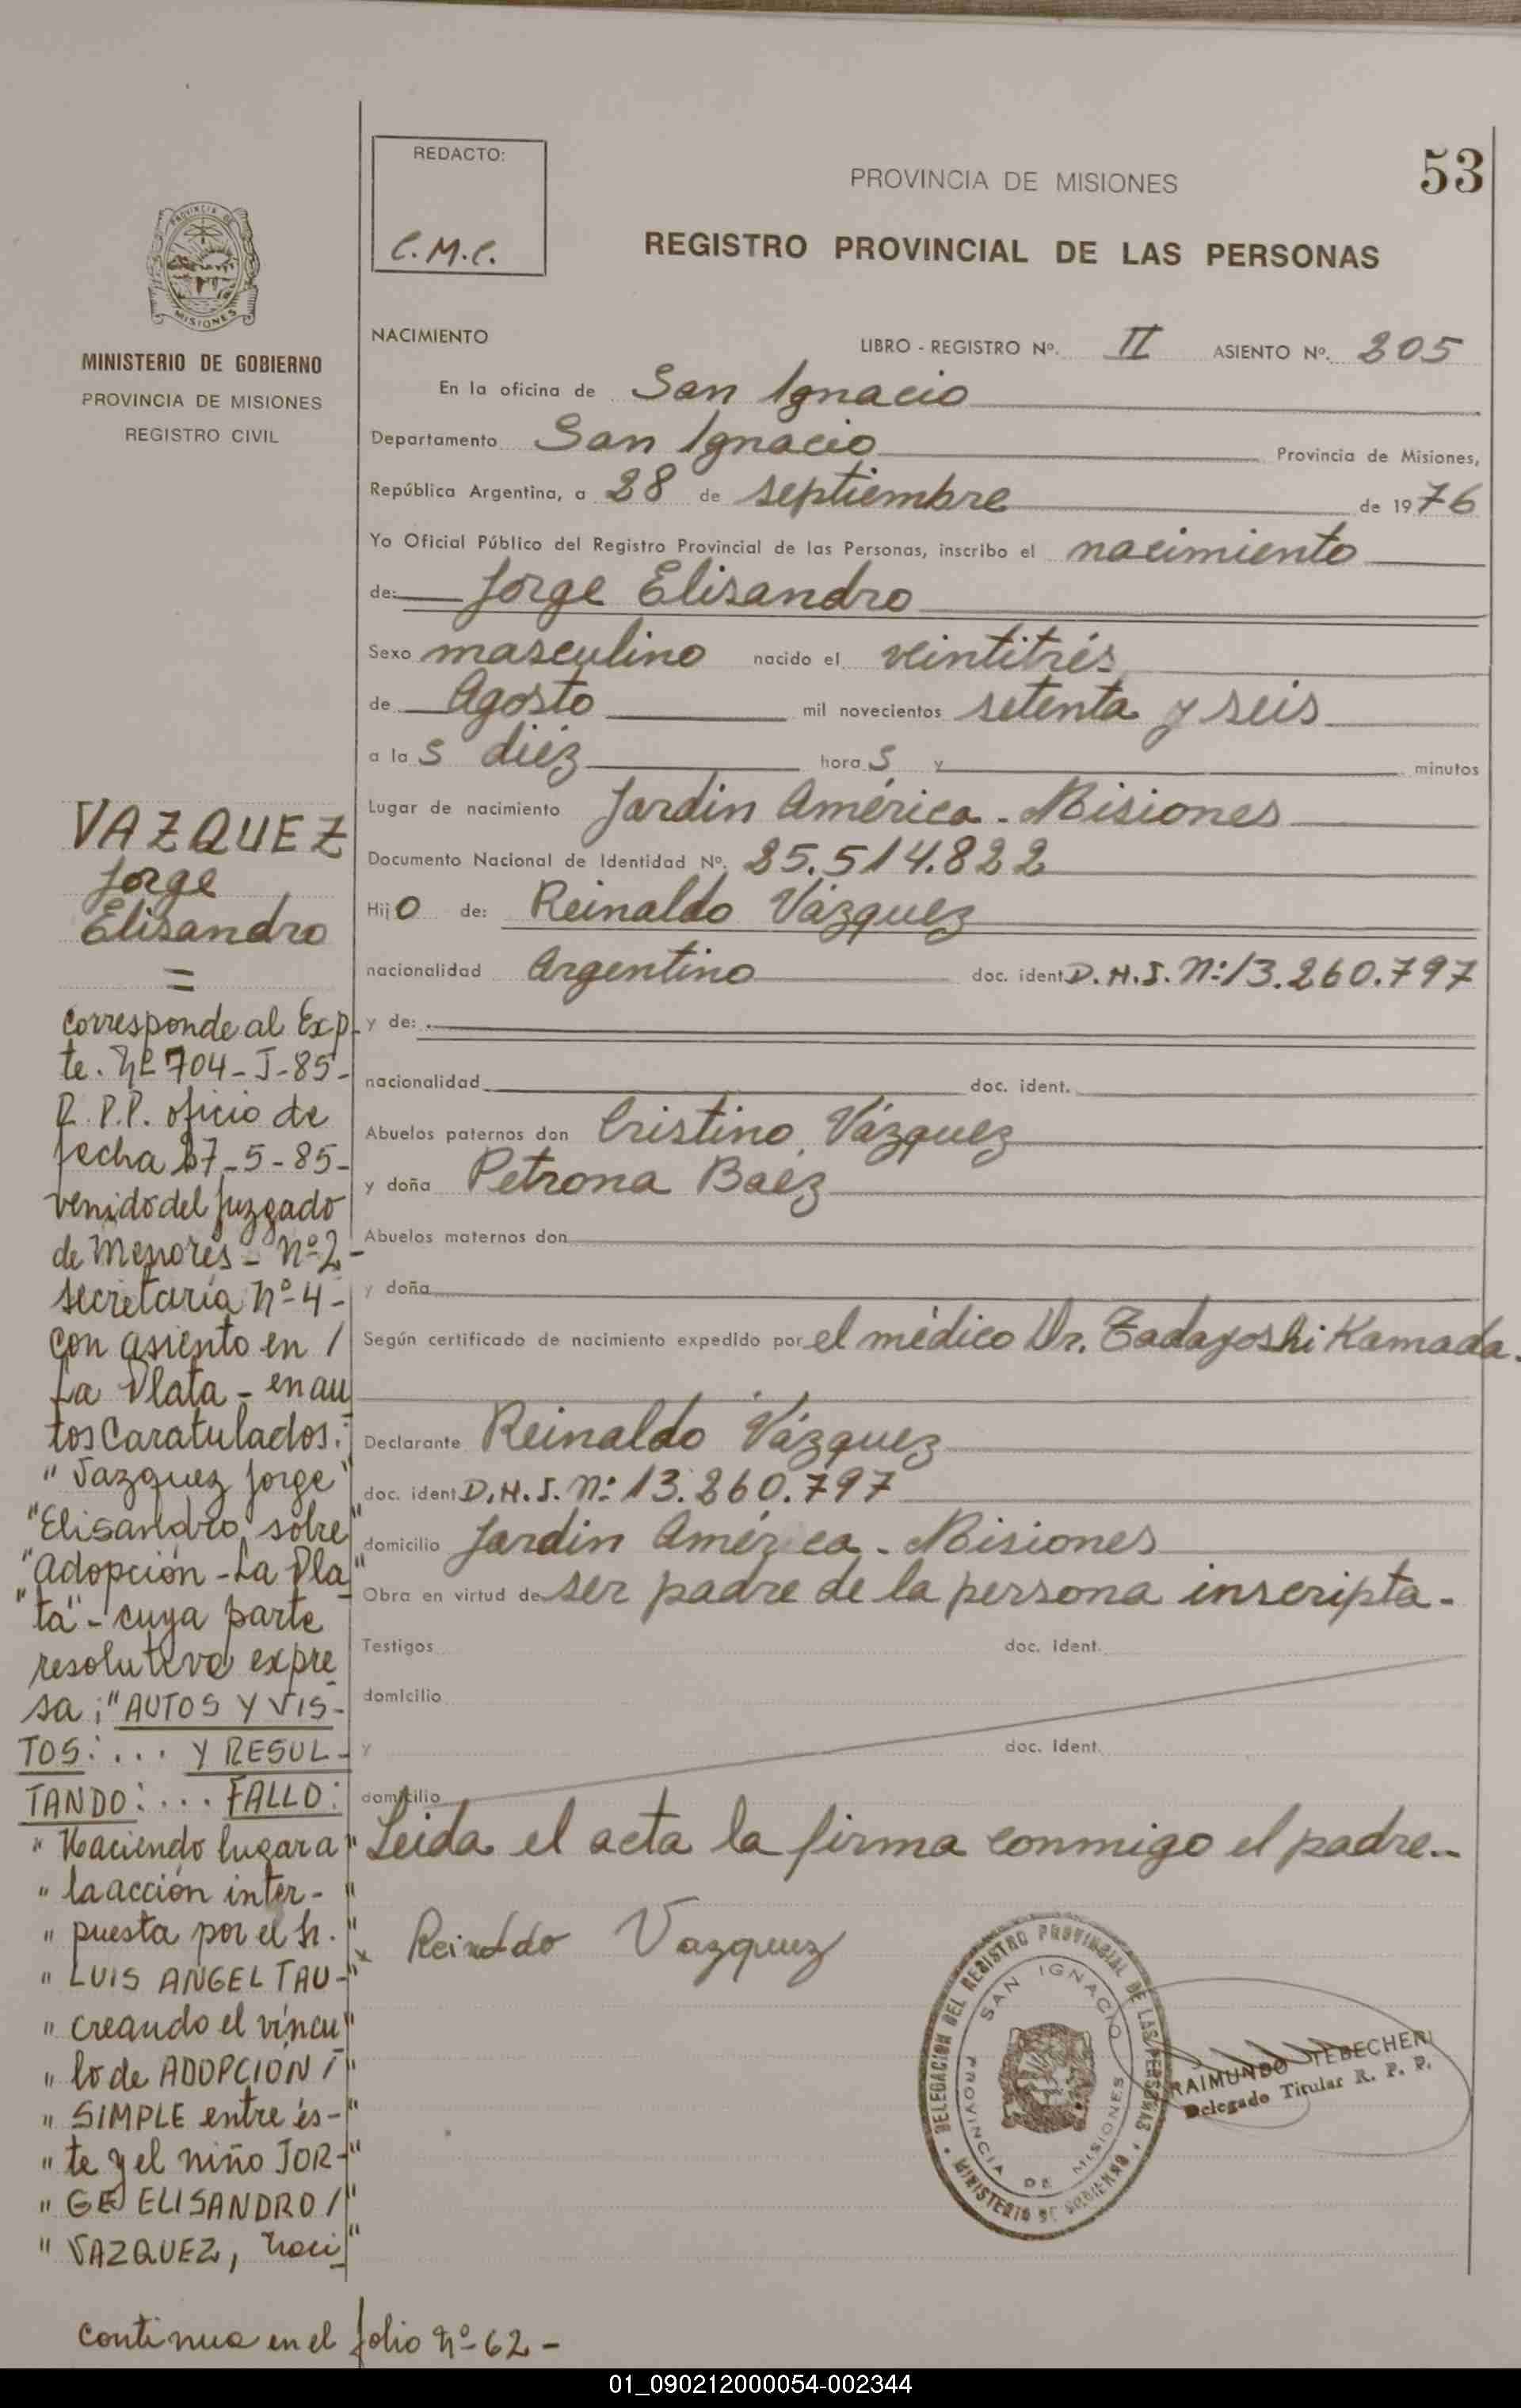 53
REDACTO:
C.M.C.
PROVINCIA DE MISIONES
REGISTRO PROVINCIAL DE LAS PERSONAS
PROVINCIA DE
MISIONES
MINISTERIO DE GOBIERNO
PROVINCIA DE MISIONES
REGISTRO CIVIL
NACIMIENTO
LIBRO - REGISTRO Nº. II ASIENTO Nº. 205
En la oficina de San Ignacio
Departamento San Ignacio Provincia de Misiones,
República Argentina, a 28 de septiembre de 1976
Yo Oficial Público del Registro Provincial de las Personas, inscribo el nacimiento
de: Jorge Elisandro
Sexo masculino nacido el veintitrés
de Agosto mil novecientos setenta y seis
a las diéz horas y minutos
Lugar de nacimiento Jardin América - Misiones
Documento Nacional de Identidad Nº. 25.514.822
Hijo de: Reinaldo Vázquez
nacionalidad Argentino doc. ident D.N.I. Nº: 13.260.797
y de:
nacionalidad doc. ident.
Abuelos paternos don Cristino Vázquez
y doña Petrona Baéz
Abuelos maternos don
y doña
Según certificado de nacimiento expedido por el médico Dr. Tadayoshi Kamada.
Declarante Reinaldo Vázquez
doc. ident D.N.I. Nº: 13.260.797
domicilio Jardin América - Misiones
Obra en virtud de ser padre de la persona inscripta.-
Testigos doc. ident.
domicilio
y doc. ident.
domicilio
Leida el acta la firma conmigo el padre.-
Reinaldo Vazquez
DELEGACION DEL REGISTRO PROVINCIAL DE LAS PERSONAS
SAN IGNACIO
PROVINCIA DE MISIONES
MINISTERIO DE GOBIERNO
RAIMUNDO TEBECHERI
Delegado Titular R. P. P.
VAZQUEZ
Jorge
Elisandro
=
Corresponde al Exp-
te. Nº 704-J-85-
R.P.P. oficio de
fecha 27-5-85-
venido del Juzgado
de Menores - Nº 2-
secretaría Nº 4-
con asiento en /
La Plata - en au
tos Caratulados:
"Vazquez Jorge"
"Elisandro sobre"
"Adopción - La Pla"
"ta" - cuya parte
resolutiva expre
sa; "AUTOS Y VIS-
TOS: ... Y RESUL-
TANDO: ... FALLO:
" Haciendo lugar a "
" la acción inter- "
" puesta por el Sr. "
" LUIS ANGEL TAU- "
" creando el víncu "
" lo de ADOPCIÓN / "
" SIMPLE entre és- "
" te y el niño JOR- "
" GE ELISANDRO / "
" VAZQUEZ, naci "
continua en el folio Nº 62 -
01_090212000054-002344